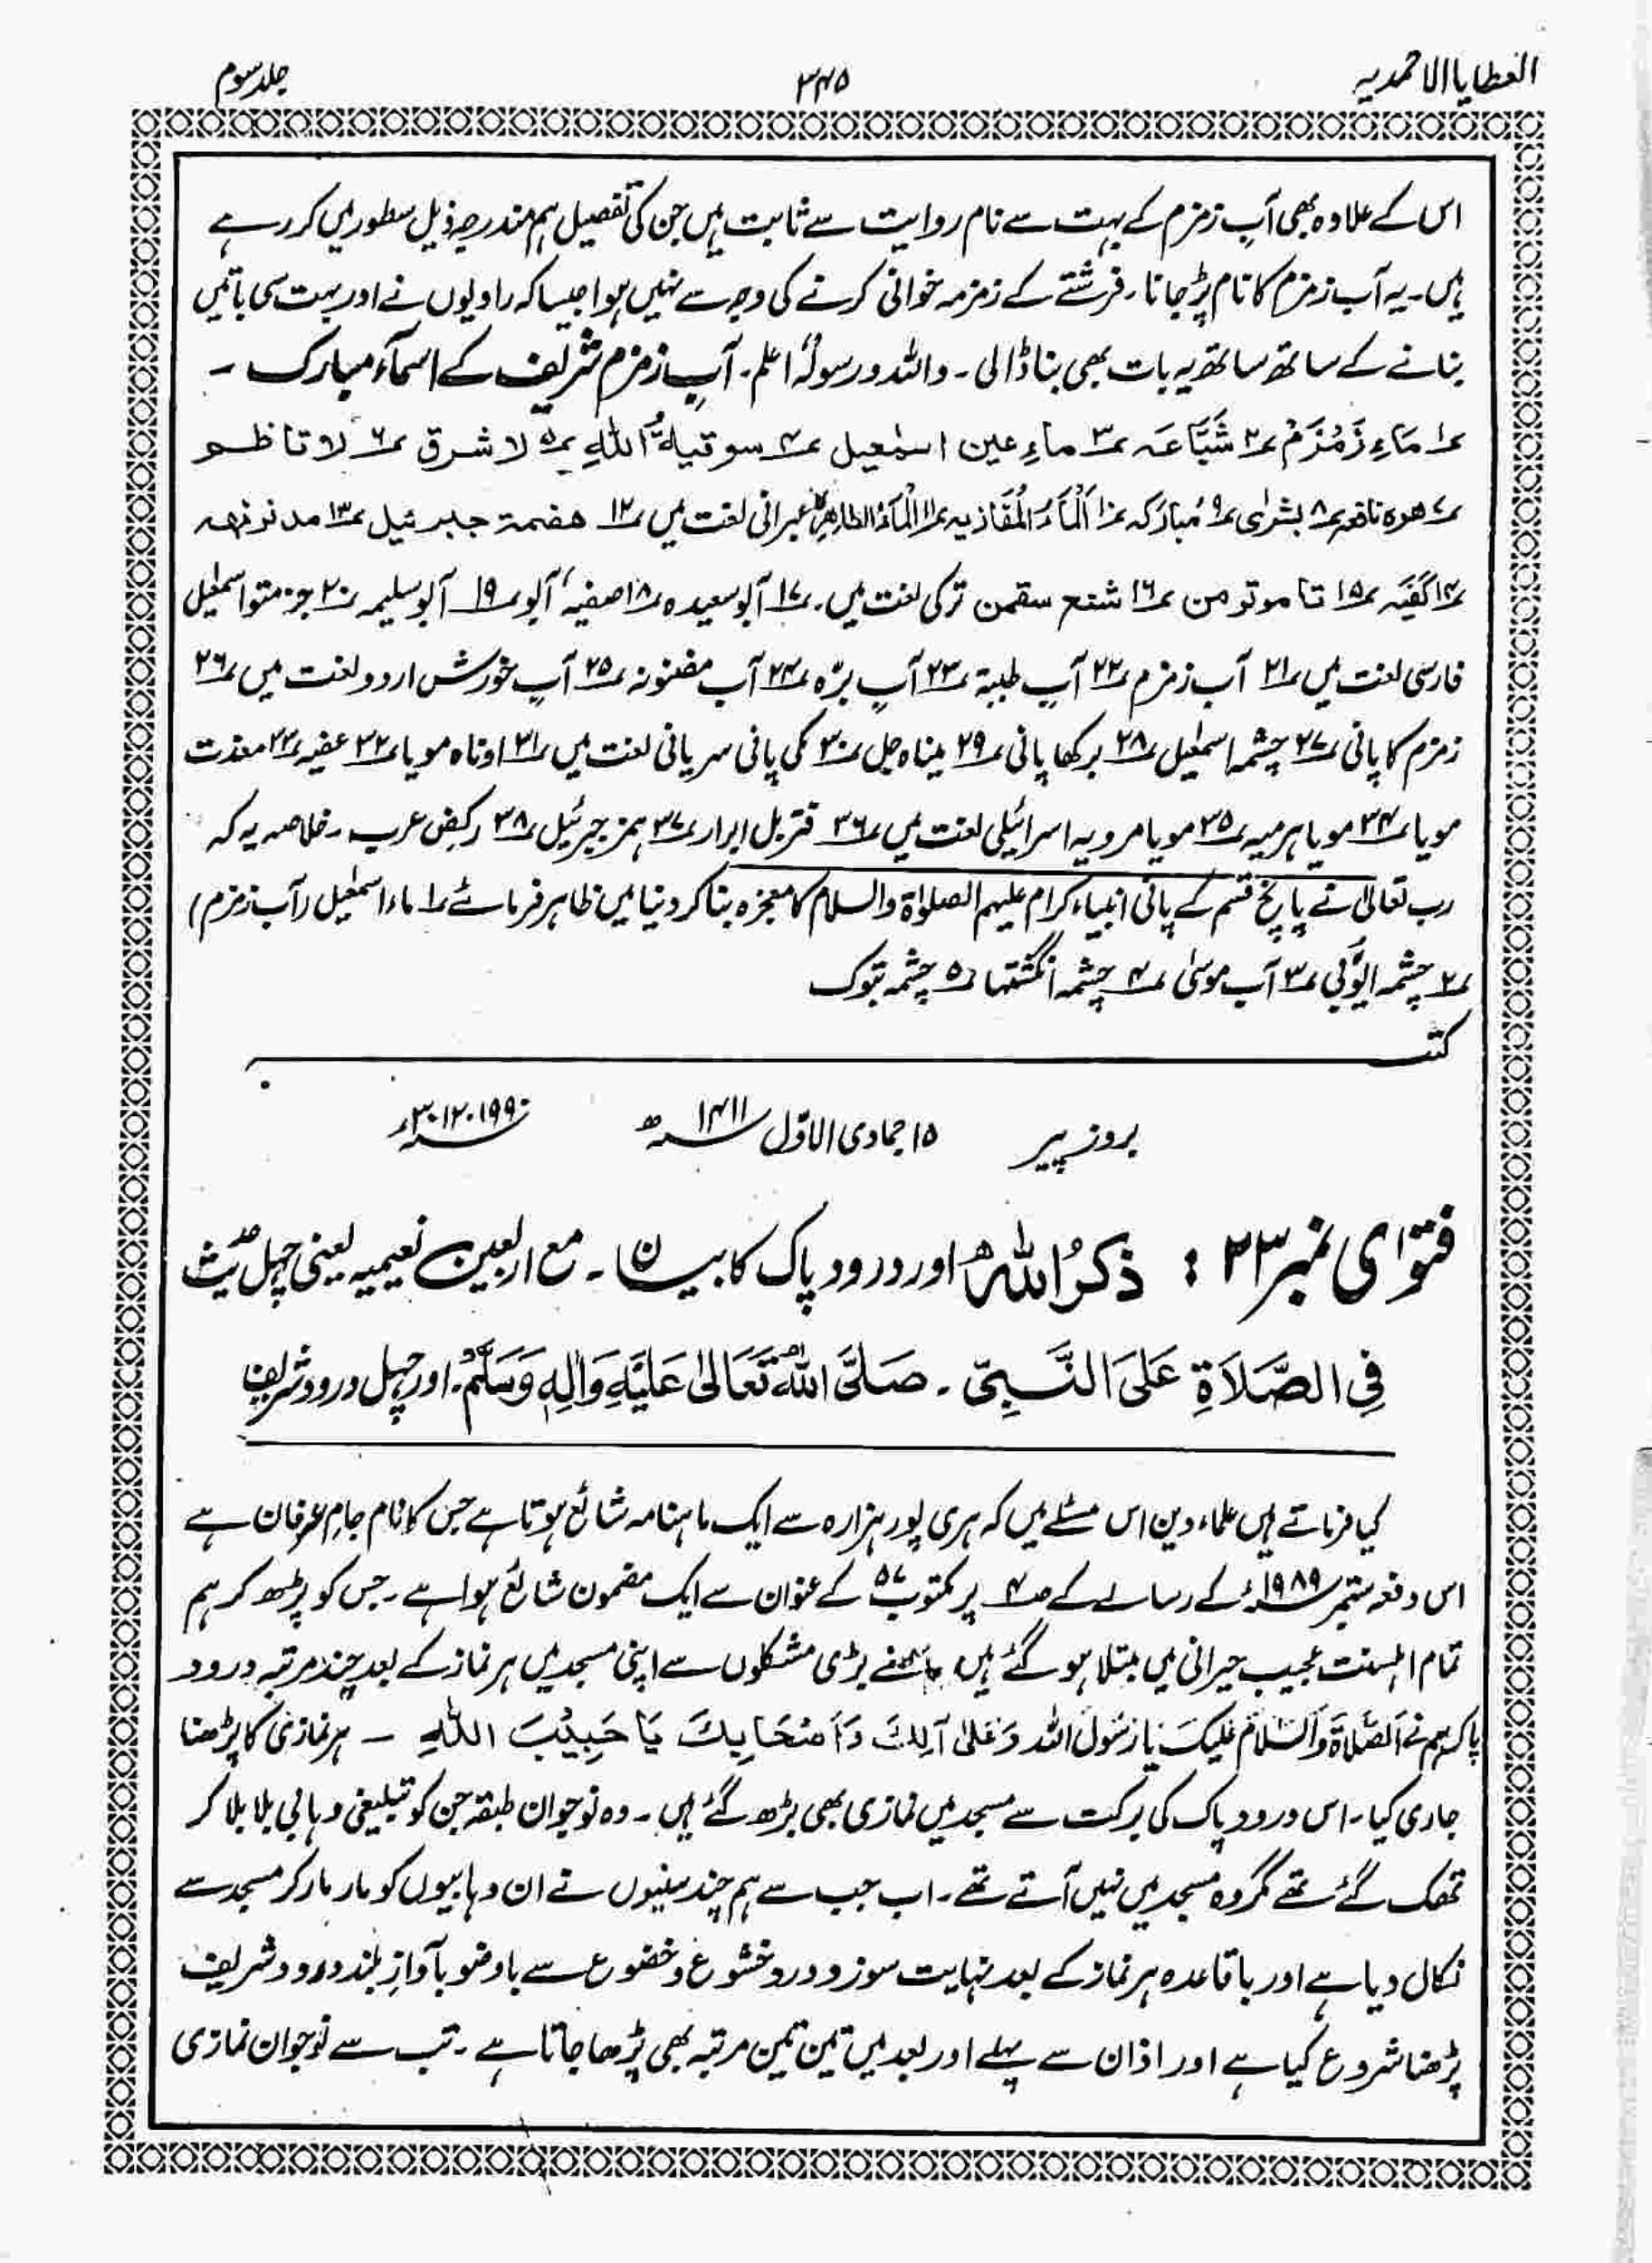 العطایا الاحمدیہ ۳۴۵ جلد سوم
اس کے علاوہ بھی آبِ زمزم کے بہت سے نام روایت سے ثابت ہیں جن کی تفصیل ہم مندرجہ ذیل سطور میں کر رہے
ہیں۔ یہ آب زمزم کا نام پڑ جانا۔ فرشتے کے زمزمہ خوانی کرنے کی وجہ سے نہیں ہوا جیسا کہ راویوں نے اور بہت سی باتیں
بنانے کے ساتھ ساتھ یہ بات بھی بنا ڈالی۔ واللہ ورسولہٗ اعلم۔ آبِ زمزم شریف کے اسمآء مبارک ۔
۱ مَاءِ زَمْزَمْ ۲ شَبَّاعَہ ۳ ماءِ عین اسمٰعیل ۴ سوتیلۃُ اللّٰہِ ۵ لا شرق ۶ لا تاظم
۷ ھوہ نافعہ ۸ بشرٰی ۹ مُبارَکہ ۱۰ اَلْمَآءُ الْمَفَازیہ ۱۱ اَلْمَآءُ الطاہرہ عبرانی لغت میں ۱۲ ھفمۃ جبرئیل ۱۳
۱۴ کَفِیَہ ۱۵ تا موتومن ۱۶ شنع سقمن ترکی لغت میں۔ ۱۷ آبو سعیدہ ۱۸ صفیہ آبو ۱۹ آبو سلیمہ ۲۰ جزمتو اسمٰعیل
فارسی لغت میں ۲۱ آب زمزم ۲۲ آبِ طیبۃ ۲۳ آبِ برّہ ۲۴ آب مضنونہ ۲۵ آبِ خورش اردو لغت میں ۲۶
زمزم کا پانی ۲۷ چشمہ اسمٰعیل ۲۸ برکھا پانی ۲۹ میناہ جل ۳۰ مکی پانی سریانی لغت میں ۳۱ اوناہ مویا ۳۲ عفیہ ۳۳ معذت
مویا ۳۴ مویا ہرمیہ ۳۵ مویا مرویہ اسرائیلی لغت میں ۳۶ قتربل ابرار ۳۷ ہمز جبرئیل ۳۸ رکضِ عرب۔ خلاصہ یہ کہ
رب تعالٰی نے پانچ قسم کے پانی انبیاء کرام علیہم الصلواۃ والسلام کا معجزہ بنا کر دنیا میں ظاہر فرمائے ۱ ماء اسمٰعیل (آب زمزم)
۲ چشمہ ایّوبی ۳ آب موسیٰ ۴ چشمہ انگشتہا ۵ چشمہ تبوک
کتبـــہ
بروز پیر ۱۵ جمادی الاوّل ۱۴۱۱ھ ۳.۱۲.۱۹۹۰ء
فتوٰای نمبر ۲۳ : ذکرُ اللّٰہ اور درود پاک کا بیان۔ مع اربعین نعیمیہ یعنی چہل حدیث
فِی الصَّلَاۃِ عَلَی النَّبِیّ ۔ صَلَّی اللّٰہُ تَعَالٰی عَلَیْہِ وَاٰلِہٖ وَسَلَّمْ۔ اور چہل درود شریف
کیا فرماتے ہیں علماء دین اس مسئلے میں کہ ہری پور ہزارہ سے ایک ماہنامہ شائع ہوتا ہے جس کا نام جام عرفان ہے
اس دفعہ ستمبر ۱۹۸۹ء کے رسالے کے صہ ۴ پر مکتوب ۵۷ کے عنوان سے ایک مضمون شائع ہوا ہے۔ جس کو پڑھ کر ہم
تمام اہلسنت عجیب حیرانی میں مبتلا ہو گئے ہیں۔ ہم نے بڑی مشکلوں سے اپنی مسجد میں ہر نماز کے بعد چند مرتبہ درود
پاک ہم نے اَلصَّلَاۃُ وَالسَّلَامُ عَلَیْکَ یَا رَسُولَ اللّٰہ وَعَلٰی آلِکَ وَاَصْحَابِکَ یَا حَبِیْبَ اللّٰہِ ۔ ہر نمازی کا پڑھنا
جاری کیا۔ اس درود پاک کی برکت سے مسجد میں نمازی بھی بڑھ گئے ہیں۔ وہ نوجوان طبقہ جن کو تبلیغی وہابی بلا بلا کر
تھک گئے تھے مگر وہ مسجد میں نہیں آتے تھے۔ اب جب سے ہم چند سنیوں نے ان وہابیوں کو مار مار کر مسجد سے
نکال دیا ہے اور باقاعدہ ہر نماز کے بعد نہایت سوز و درد خشوع و خضوع سے باوضو بآوازِ بلند درود شریف
پڑھنا شروع کیا ہے اور اذان سے پہلے اور بعد میں تین تین مرتبہ بھی پڑھا جاتا ہے۔ تب سے نوجوان نمازی